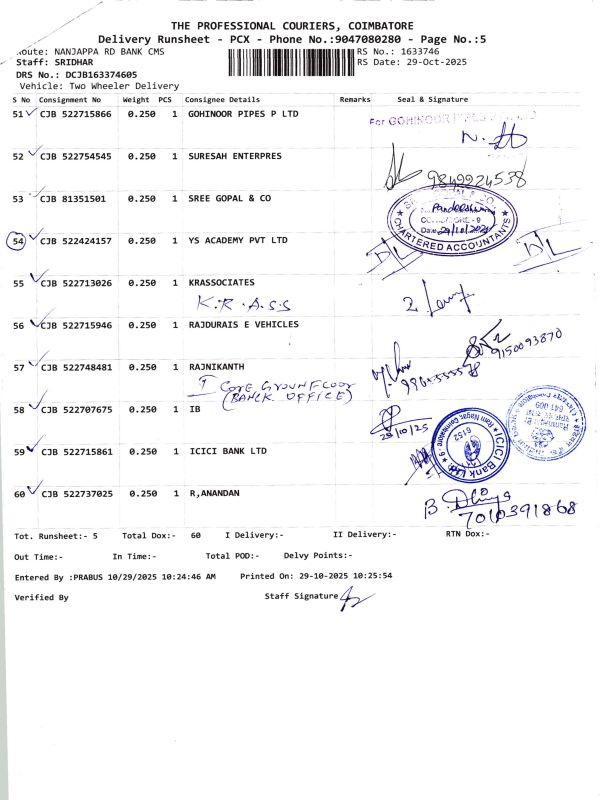 THE PROFESSIONAL COURIERS, COIMBATORE
Delivery Runsheet - PCX - Phone No.:9047080280 - Page No.:5
Route: NANJAPPA RD BANK CMS RS No.: 1633746
Staff: SRIDHAR RS Date: 29-Oct-2025
DRS No.: DCJB163374605
Vehicle: Two Wheeler Delivery
S No Consignment No Weight PCS Consignee Details Remarks Seal & Signature
51 CJB 522715866 0.250 1 GOHINOOR PIPES P LTD
For GOHINOOR PIPES
52 CJB 522754545 0.250 1 SURESAH ENTERPRES
9849924538
53 CJB 81351501 0.250 1 SREE GOPAL & CO
CHARTERED ACCOUNTANTS
54 CJB 522424157 0.250 1 YS ACADEMY PVT LTD
D/L D/L
55 CJB 522713026 0.250 1 KRASSOCIATES
K.R.A.S.S
56 CJB 522715946 0.250 1 RAJDURAIS E VEHICLES
9150093870
57 CJB 522748481 0.250 1 RAJNIKANTH
(BANCK OFFICE)
58 CJB 522707675 0.250 1 IB
29/10/25
59 CJB 522715861 0.250 1 ICICI BANK LTD
ICICI Bank Ltd
Ram Nagar, Coimbatore - 9
6152
641 009
60 CJB 522737025 0.250 1 R,ANANDAN
7010391868
Tot. Runsheet:- 5 Total Dox:- 60 I Delivery:- II Delivery:- RTN Dox:-
Out Time:- In Time:- Total POD:- Delvy Points:-
Entered By :PRABUS 10/29/2025 10:24:46 AM Printed On: 29-10-2025 10:25:54
Verified By Staff Signature